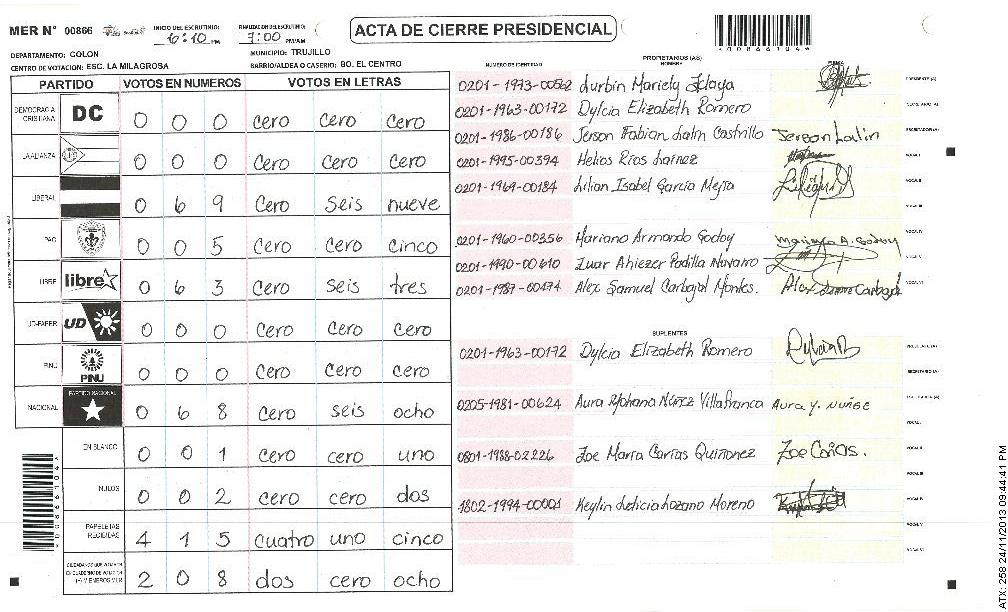 MER N° 00866
INICIO DEL ESCRUTINIO: 6:10 PM/AM
FINALIZACION DEL ESCRUTINIO: 7:00 PM/AM
ACTA DE CIERRE PRESIDENCIAL
DEPARTAMENTO: COLON
MUNICIPIO: TRUJILLO
CENTRO DE VOTACION: ESC. LA MILAGROSA
BARRIO/ALDEA O CASERIO: BO. EL CENTRO
PARTIDO VOTOS EN NUMEROS VOTOS EN LETRAS
DEMOCRACIA CRISTIANA DC 0 0 0 cero cero cero
LA ALIANZA 0 0 0 cero cero cero
LIBERAL 0 6 9 cero seis nueve
PAC 0 0 5 cero cero cinco
LIBRE libre 0 6 3 cero seis tres
UD-FAPER UD 0 0 0 cero cero cero
PINU PINU 0 0 0 cero cero cero
NACIONAL PARTIDO NACIONAL 0 6 8 cero seis ocho
EN BLANCO 0 0 1 cero cero uno
NULOS 0 0 2 cero cero dos
PAPELETAS RECIBIDAS 4 1 5 cuatro uno cinco
2 0 8 dos cero ocho
PROPIETARIOS (AS)
NUMERO DE IDENTIDAD NOMBRE FIRMA
0201-1973-00562 Durbin Mariely Zelaya PRESIDENTE (A)
0201-1963-00172 Dylcia Elizabeth Romero SECRETARIO (A)
0201-1986-00186 Jerson Fabian Castrillo Jerson ESCRUTADOR (A)
0201-1995-00394 Helios Rios VOCAL I
0201-1969-00184 Lilian Isabel Garcia Mejia VOCAL II
VOCAL III
0201-1960-00356 Mariano Armando Godoy Mariano A. Godoy VOCAL IV
0201-1990-00610 Ahiezer Padilla Navarro VOCAL V
0201-1987-00474 Alex Samuel Carbajal Montes. Alex Carbajal VOCAL VI
SUPLENTES
0201-1963-00172 Dylcia Elizabeth Romero PRESIDENTE (A)
SECRETARIO (A)
0205-1981-00624 Aura Núñez Villafranca Aura Y. Nuñez ESCRUTADOR (A)
VOCAL I
0801-1988-02226 Zoe María Carías Quiñonez VOCAL II
VOCAL III
1802-1994-00001 Keylin Leticia Lozano Moreno VOCAL IV
VOCAL V
VOCAL VI
ATX: 258 24/11/2013 09:44:41 PM